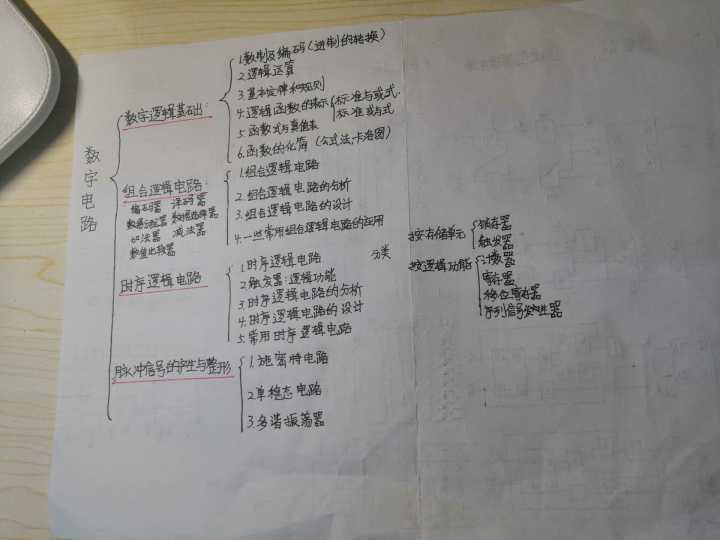 数字电路
数字逻辑基础:
1.数制及编码(进制的转换)
2.逻辑运算
3.基本定律和规则
4.逻辑函数的标
标准与或式.
标准或与式
5.函数式与真值表
6.函数的化简(公式法,卡洛图)
组合逻辑电路:
编码器 译码器
数据分配器 数据选择器
加法器 减法器
数值比较器
1.组合逻辑电路
2.组合逻辑电路的分析
3.组合逻辑电路的设计
4.一些常用组合逻辑电路的应用
时序逻辑电路
1.时序逻辑电路 分类
2.触发器:逻辑功能
3.时序逻辑电路的分析
4.时序逻辑电路的设计
5.常用时序逻辑电路
按存储单元
锁存器
触发器
按逻辑功能
计数器
寄存器
移位寄存器
序列信号发生器
脉冲信号的产生与整形
1.施密特电路
2.单稳态电路
3.多谐振荡器